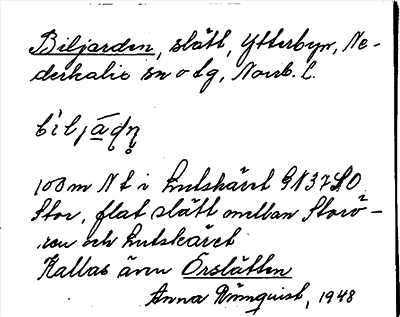 Biljarden, slätt, Ytterbyn, Ne-
derkalix sn o tg, Norrb. l.
100 m N t i Lutskäret GN37SO
Stor, flat slätt mellan Storö-
ren och Lutskäret
Kallas även Örslätten
Anna Rönnquist, 1948